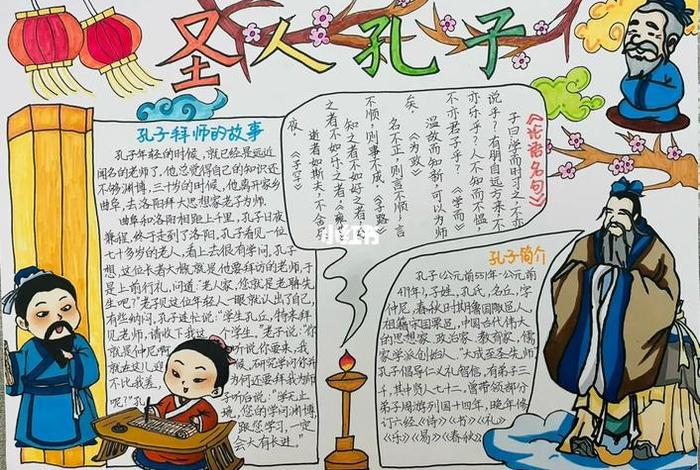 圣人孔子
孔子拜师的故事
孔子年轻的时候,就已经是远近
闻名的老师了,他总觉得自己的知识还
不够渊博,三十岁的时候,他离开家乡
曲阜,去洛阳拜大思想家老子为师。
曲阜和洛阳相距上千里,孔子日夜
兼程,终于走到了洛阳。孔子看见一位
七十多岁的老人,看上去很有学问,孔子
想,这位长者大概就是他要拜访的老师,于
是上前行礼,问道:"老人家,您就是老聃先
生吧?"老子见这位年轻人一眼就认出了自己,
有些纳闷,孔子连忙说:"学生孔丘,特来拜
见老师,请收下我这个学生。"老子说:"你
就是仲尼啊,
听说你要来,我
就在这儿迎
候,研究学问你并
不比我差,
为何还要拜我为师
呢?"孔
子听后说:"学无止
境,您的学问渊博,
跟您学习,一定
会大有长进。"
《论语名句》
子曰学而时习之,不亦
说乎?有朋自远方来,不
亦乐乎?人不知而不愠,
不亦君子乎?《学而》
温故而知新,可以为师
矣。《为政》
名不正,则言不顺,言
不顺,则事不成,《子路》
知之者不如好之者,好
之者不如乐之者,《雍
逝者如斯夫,不舍昼
夜,《子罕》
小红书
孔子简介
孔子(公元前551年-公元前
479年),子姓,孔氏,名丘,字
仲尼,春秋时期鲁国陬邑人,
祖籍宋国栗邑,中国古代伟大
的思想家、政治家、教育家,儒
家学派创始人、"大成至圣先师"
孔子倡导仁义礼智信,有弟子三
千,其中贤人七十二,曾带领部分
弟子周游列国十四年,晚年修
订六经《诗》《书》《礼》
《乐》《易》《春秋》